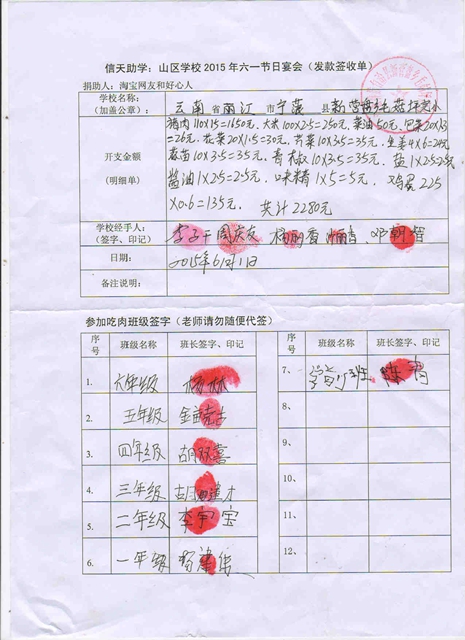 信天助学：山区学校2015年六一节日宴会（发款签收单）
捐助人：淘宝网友和好心人
学校名称：
（加盖公章）：
云南省丽江市宁蒗县新营盘乡
开支金额
（明细单）
猪肉110×15=1650元，大米100×2.5=250元，菜油50元，
花菜20×1.5=30元，芹菜10×3.5=35元，生姜4×6=24元
10×3.5=35元，青椒10×3.5=35元，盐1×2.5=2.5元
酱油1×2.5=2.5元，味精1×5=5元，鸡蛋225
×0.6=135元，共计2280元
学校经手人：
（签字、印记）
日期：
2015年6月1日
备注说明：
参加吃肉班级签字（老师请勿随便代签）
序号 班级名称 班长签字、印记 序号 班级名称 班长签字、印记
1. 六年级 杨林 7、 学前班
2. 五年级 8、
3. 四年级 胡双喜 9、
4. 三年级 10、
5. 二年级 李宇宝 11、
6. 一年级 12、